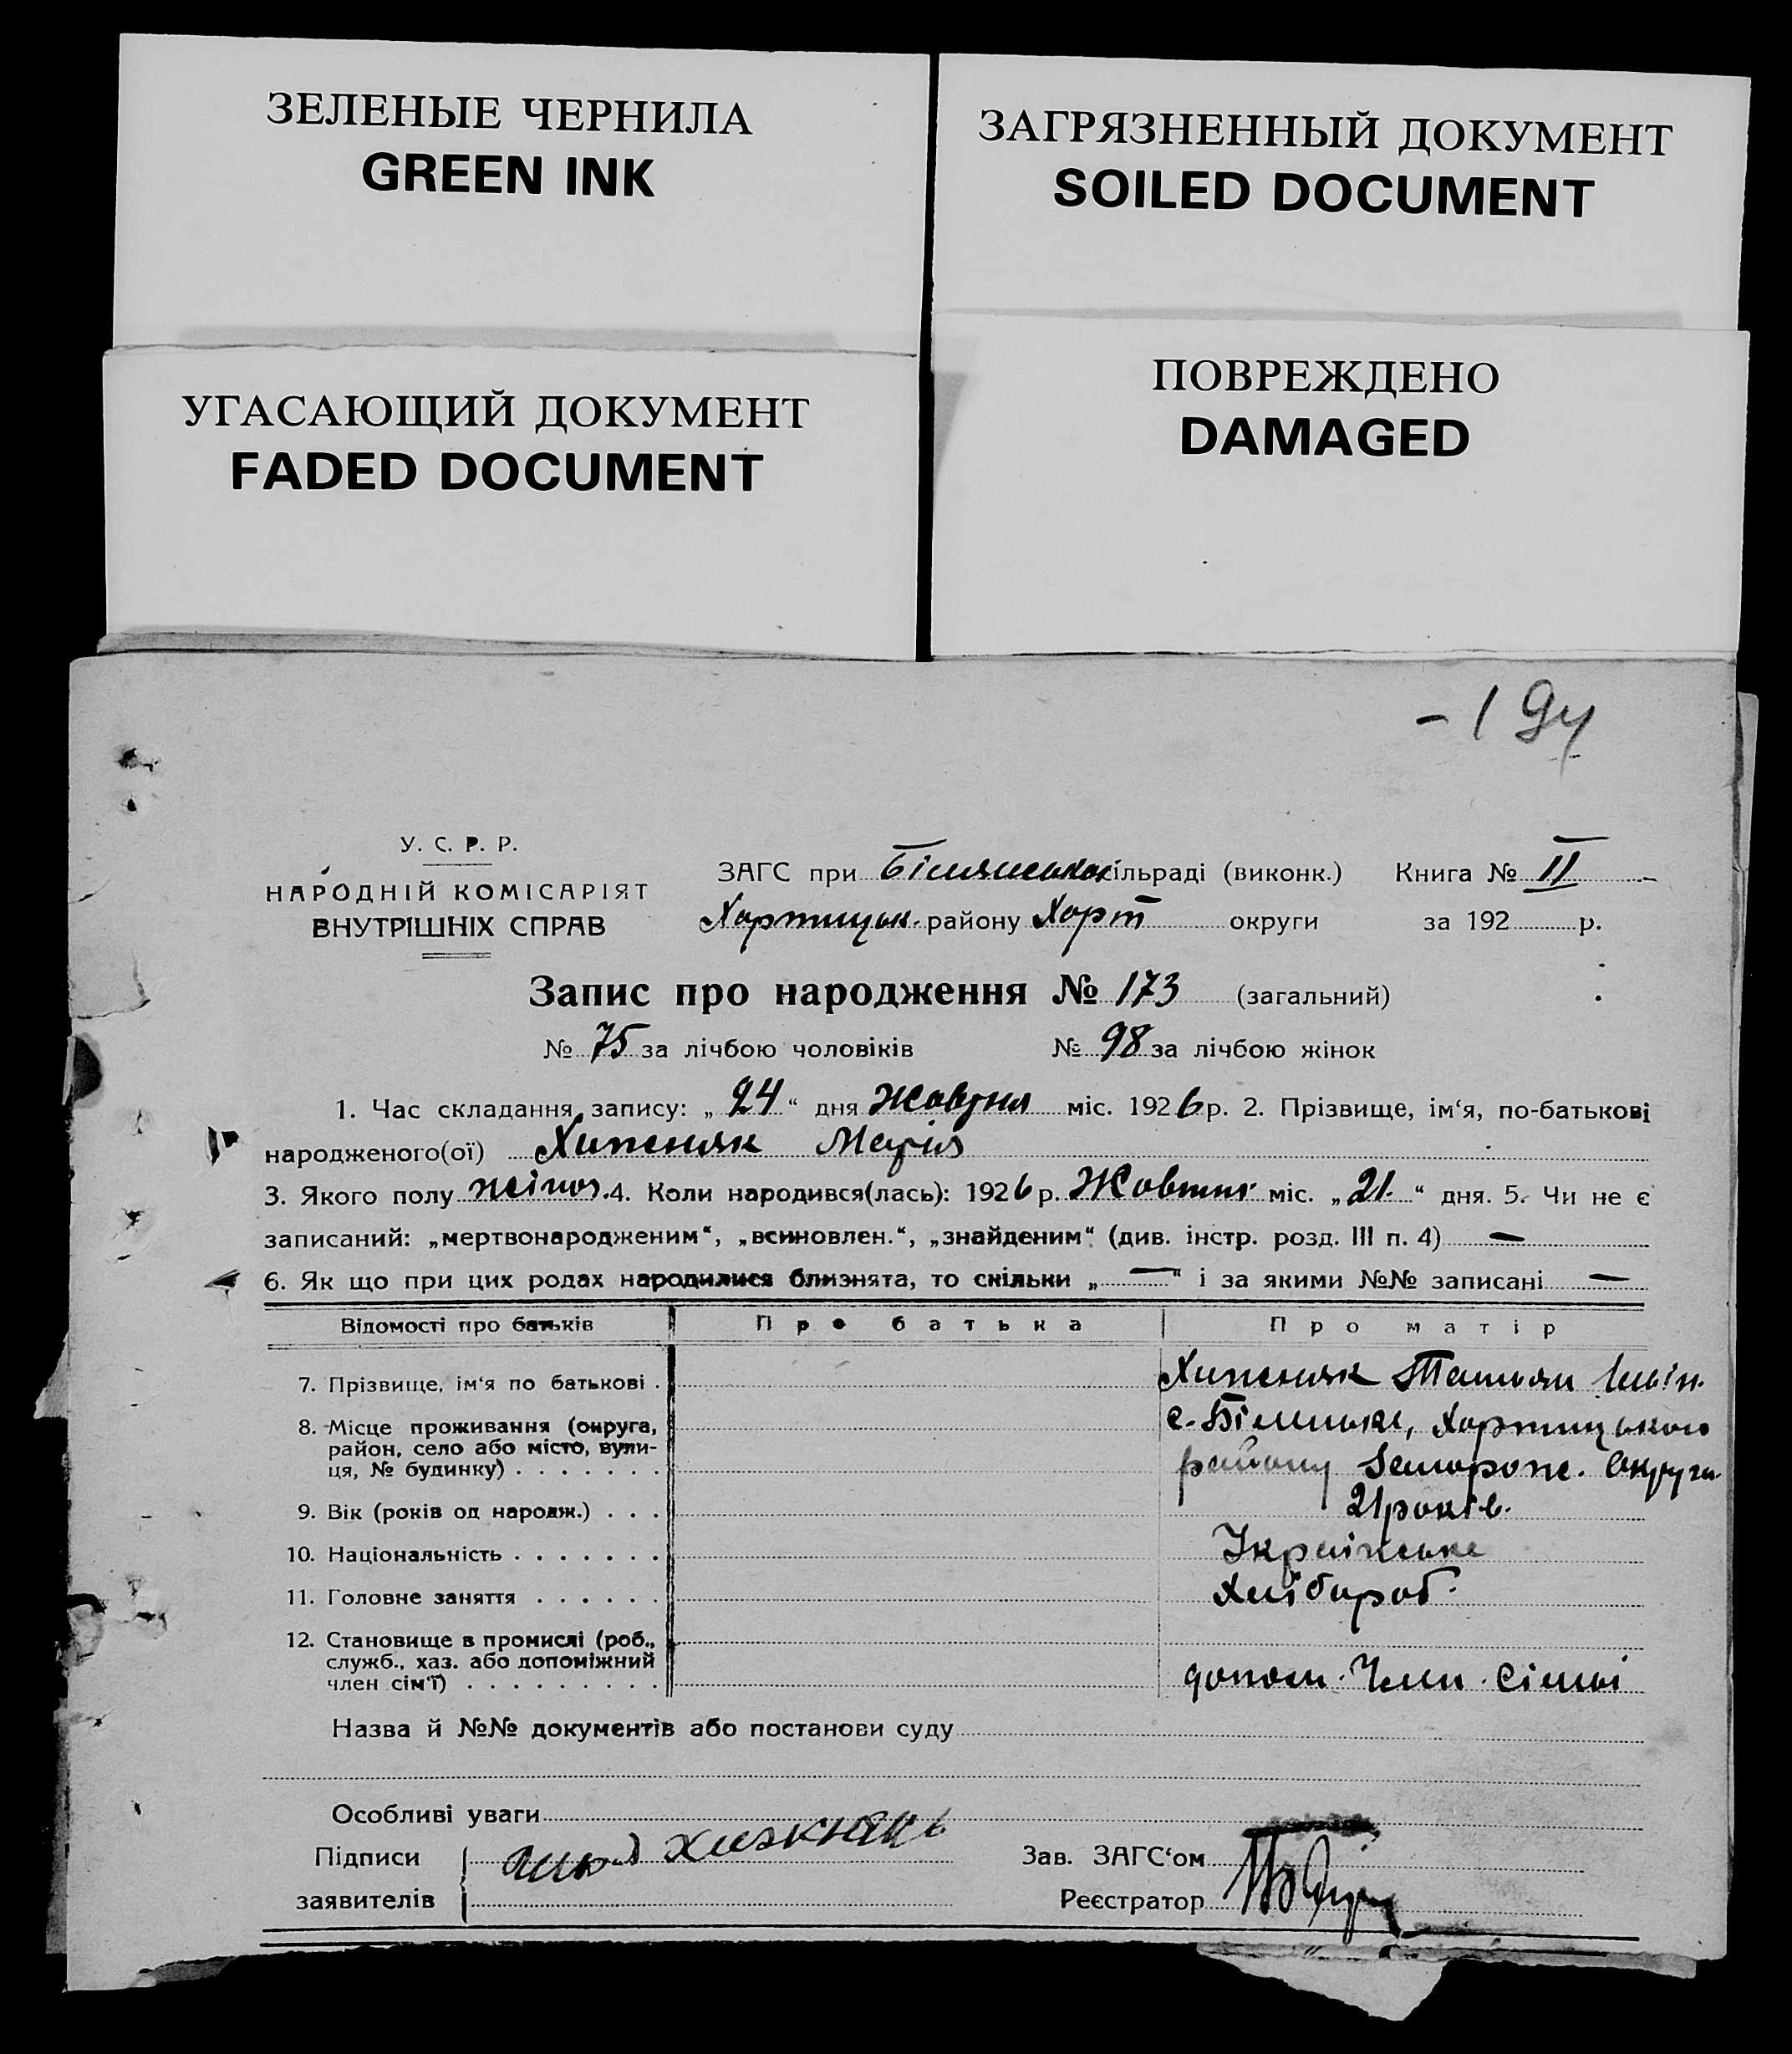 ЗЕЛЕНЫЕ ЧЕРНИЛА
GREEN INK
ЗАГРЯЗНЕННЫЙ ДОКУМЕНТ
SOILED DOCUMENT
УГАСАЮЩИЙ ДОКУМЕНТ
FADED DOCUMENT
ПОВРЕЖДЕНО
DAMAGED
У. С. Р. Р.
НАРОДНІЙ КОМІСАРІЯТ
ВНУТРІШНІХ СПРАВ
ЗАГС при сільраді (виконк.) Книга № II
Хортицьк. району Хорт округи за 192 р.
Запис про народження № 173 (загальний)
№ 75 за лічбою чоловіків № 98 за лічбою жінок
1. Час складання запису: „ 24 “ дня Жовтня міс. 1926 р. 2. Прізвище, ім‘я, по-батькові
народженого(ої) Хипеняк Марія
3. Якого полу жіноч. 4. Коли народився(лась): 1926 р. Жовтня міс. „ 21. “ дня. 5. Чи не є
записаний: „мертвонародженим“, „всиновлен.“, „знайденим“ (див. інстр. розд. III п. 4) —
6. Як що при цих родах народилися близнята, то скільки „ — “ і за якими №№ записані —
Відомості про батьків Про батька Про матір
7. Прізвище, ім‘я по батькові . Хипеняк
8. Місце проживання (округа, район, село або місто, вули-ця, № будинку) . . . . . . . с. Хортицького
району Запорож. Округи
9. Вік (років од народж.) . . . 21 років.
10. Національність . . . . . . . Українка
11. Головне заняття . . . . . . Хлібороб.
12. Становище в промислі (роб., служб., хаз. або допоміжний член сім‘ї) . . . . . . . . . допом. Член. Сімьї
Назва й №№ документів або постанови суду
Особливі уваги
Підписи
заявителів
Зав. ЗАГС‘ом
Реєстратор